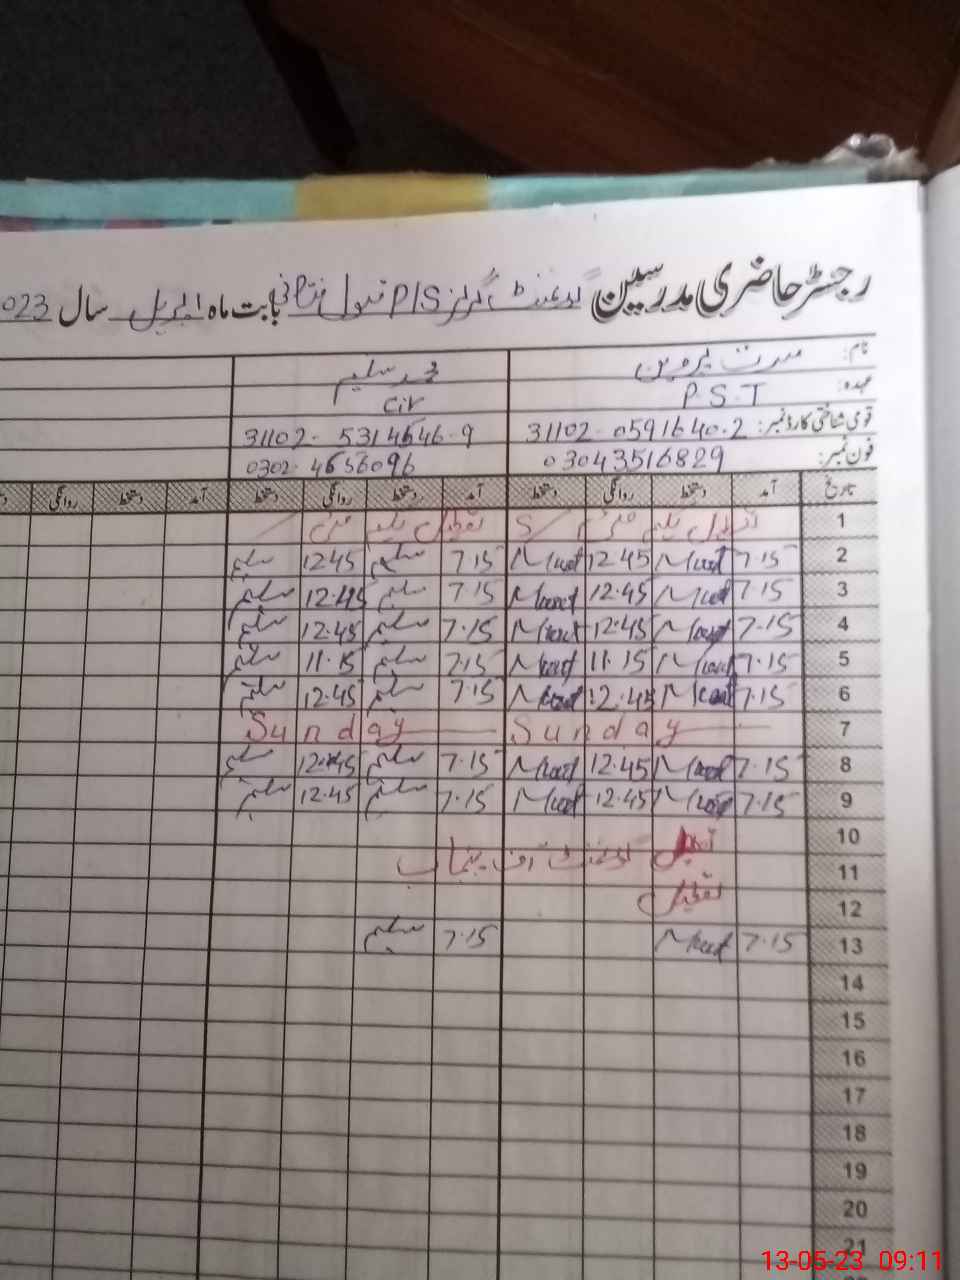 رجسٹر حاضری مدرسین گورنمنٹ گرلز P/S قبول فتانی بابت ماہ اپریل سال 023
نام: مسرت پروین محمد سلیم
عہدہ: P.S.T Civ
قومی شناختی کارڈ نمبر: 31102-0591640-2 31102-5314646-9
فون نمبر: 03043516829 0302-4656096
تاریخ آمد دستخط روانگی دستخط آمد دستخط روانگی دستخط آمد دستخط روانگی
1 تعطیل یکم مئی
2 7.15 12.45 7.15 سلیم 12.45 سلیم
3 7.15 12.45 7.15 سلیم 12.45 سلیم
4 7.15 12.45 7.15 سلیم 12.45 سلیم
5 7.15 11.15 7.15 سلیم 11.15 سلیم
6 7.15 12.45 7.15 سلیم 12.45 سلیم
7 Sunday Sunday
8 7.15 12.45 7.15 سلیم 12.45 سلیم
9 7.15 12.45 7.15 سلیم 12.45 سلیم
10 تعطیل گورنمنٹ آف پنجاب
11
12 تعطیل
13 7.15 7.15 سلیم
14
15
16
17
18
19
20
21
13-05-23 09:11